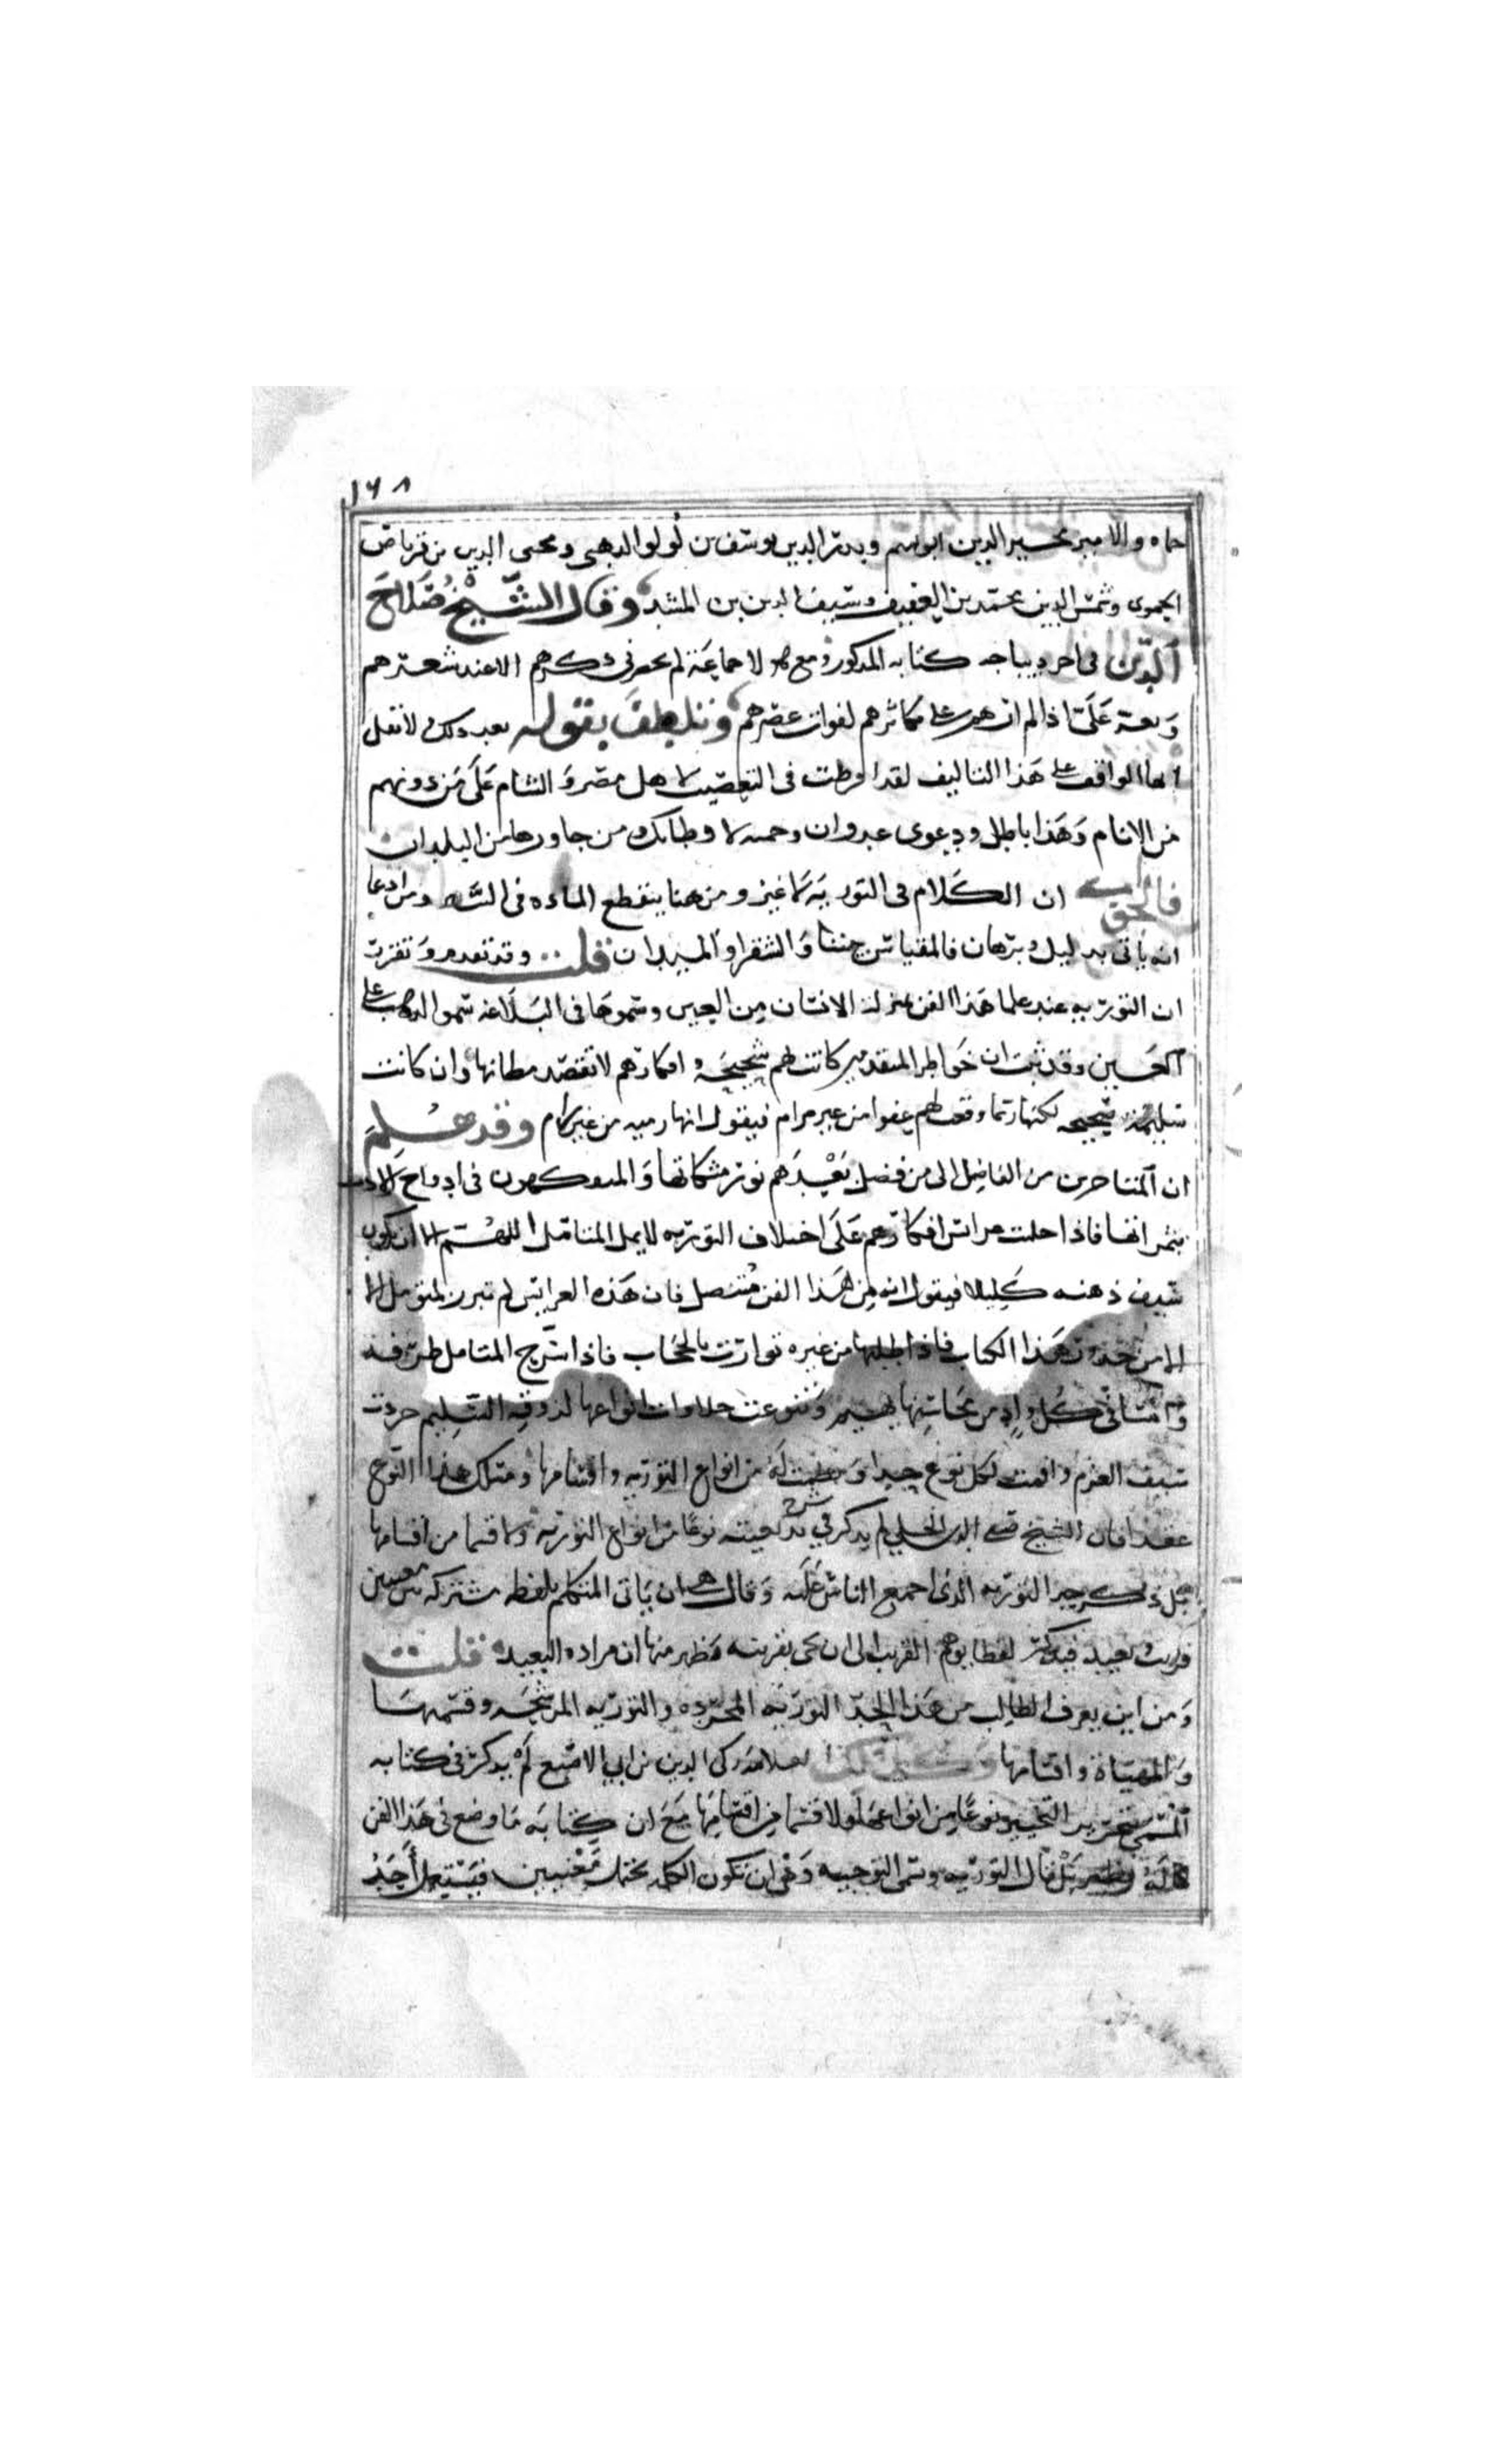 ١٦٨
حماه والامير مجير الدين ابن تميم وبدر الدين يوسف بن لولو الدهبى ومحى الدين بن قرناص
الحموى وشمس الدين محمد بن العفيف وسيف الدين بن المشد وقال الشيخ صلاح
الدين فى اخر ديباجه كتابه المذكور ومع هولا جماعة لم يحضرنى ذكرهم الا عند شعرهم
على اذا لم ارهم على مكاثرهم لفوات عصرهم وتلطف بقوله بعد ذلك لا تقل
ايها الواقف على هذا التاليف لقد افرطت فى التعصب لاهل مصر والشام على من دونهم
من الانام وهذا باطل ودعوى عدوان وحميه لاوطانك ومن جاورها من البلدان
فالجواب ان الكلام فى التوريه لا غير ومن هنا ينقطع الماده فى السير ومن ادعا
انه ياتى بدليل وبرهان فالمقياس بيننا والشقرا والميدان قلت وقد تقدم وتقرر
ان التوريه عند علما هذا الفن بمنزلة الانسان من العين وسموها فى البلاغه سمو الذهب على
العين وقد ثبت ان خواطر المتقدمين كانت بها شحيحه وافكارهم لا تقصد مظانها وان كانت
سليمه صحيحه لكنها ربما وقعت لهم عفوا من غير مرام فيقول انها رميه من غير رام وقد علم
ان المتاخرين من الفاضل الى من فضل بعدهم نور مشكاتها والمتفكهون فى ادواح الادب
بثمراتها فاذا جليت عرائس افكارهم على اختلاف التوريه لا يمل المتامل اللهم الا ان يكون
سيف ذهنه كليلا فيقول انه من هذا الفن متنصل فان هذه العرايس لم تبرز لمتوسل الا
الا من خدور هذا الكتاب فاذا طلبها من غيره توارت بالحجاب فاذا اسرح المتامل طرفه
فى كل واد من محاسنها يهيم وتنوعت حلاوات انواعها لذوقه السليم جردت
سيف العزم واقمت لكل نوع حدا ونظمت له من انواع التوريه واقسامها ومسلك هذا النوع
عقدا فان الشيخ صفى الدين الحلي لم يذكر في شرح بديعيته نوعا من انواع التوريه ولا قسما من اقسامها
بل ذكر حد التوريه الذى اجمع الناس عليه وقال هى ان ياتى المتكلم بلفظه مشتركه بين معنيين
قريب وبعيد فيذكر لفظا يوهم القريب الى ان يجى بقرينه فظهر منها ان مراده البعيد قلت
ومن اين يعرف الطالب من هذا الحد التوريه المجرده والتوريه المرشحه وقسميها
والمهياة واقسامها وكذلك العلامه زكى الدين بن ابي الاصبع لم يذكر فى كتابه
المسمى بتحرير التحبير نوعا من انواعها ولا قسما من اقسامها مع ان كتابه ما وضع فى هذا الفن
بل قال التوريه وتسمى التوجيه وهى ان تكون الكلمه تحتمل معنيين فيستعمل احد